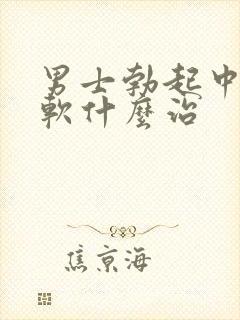 男士勃起中
軟什麼治
焦京海